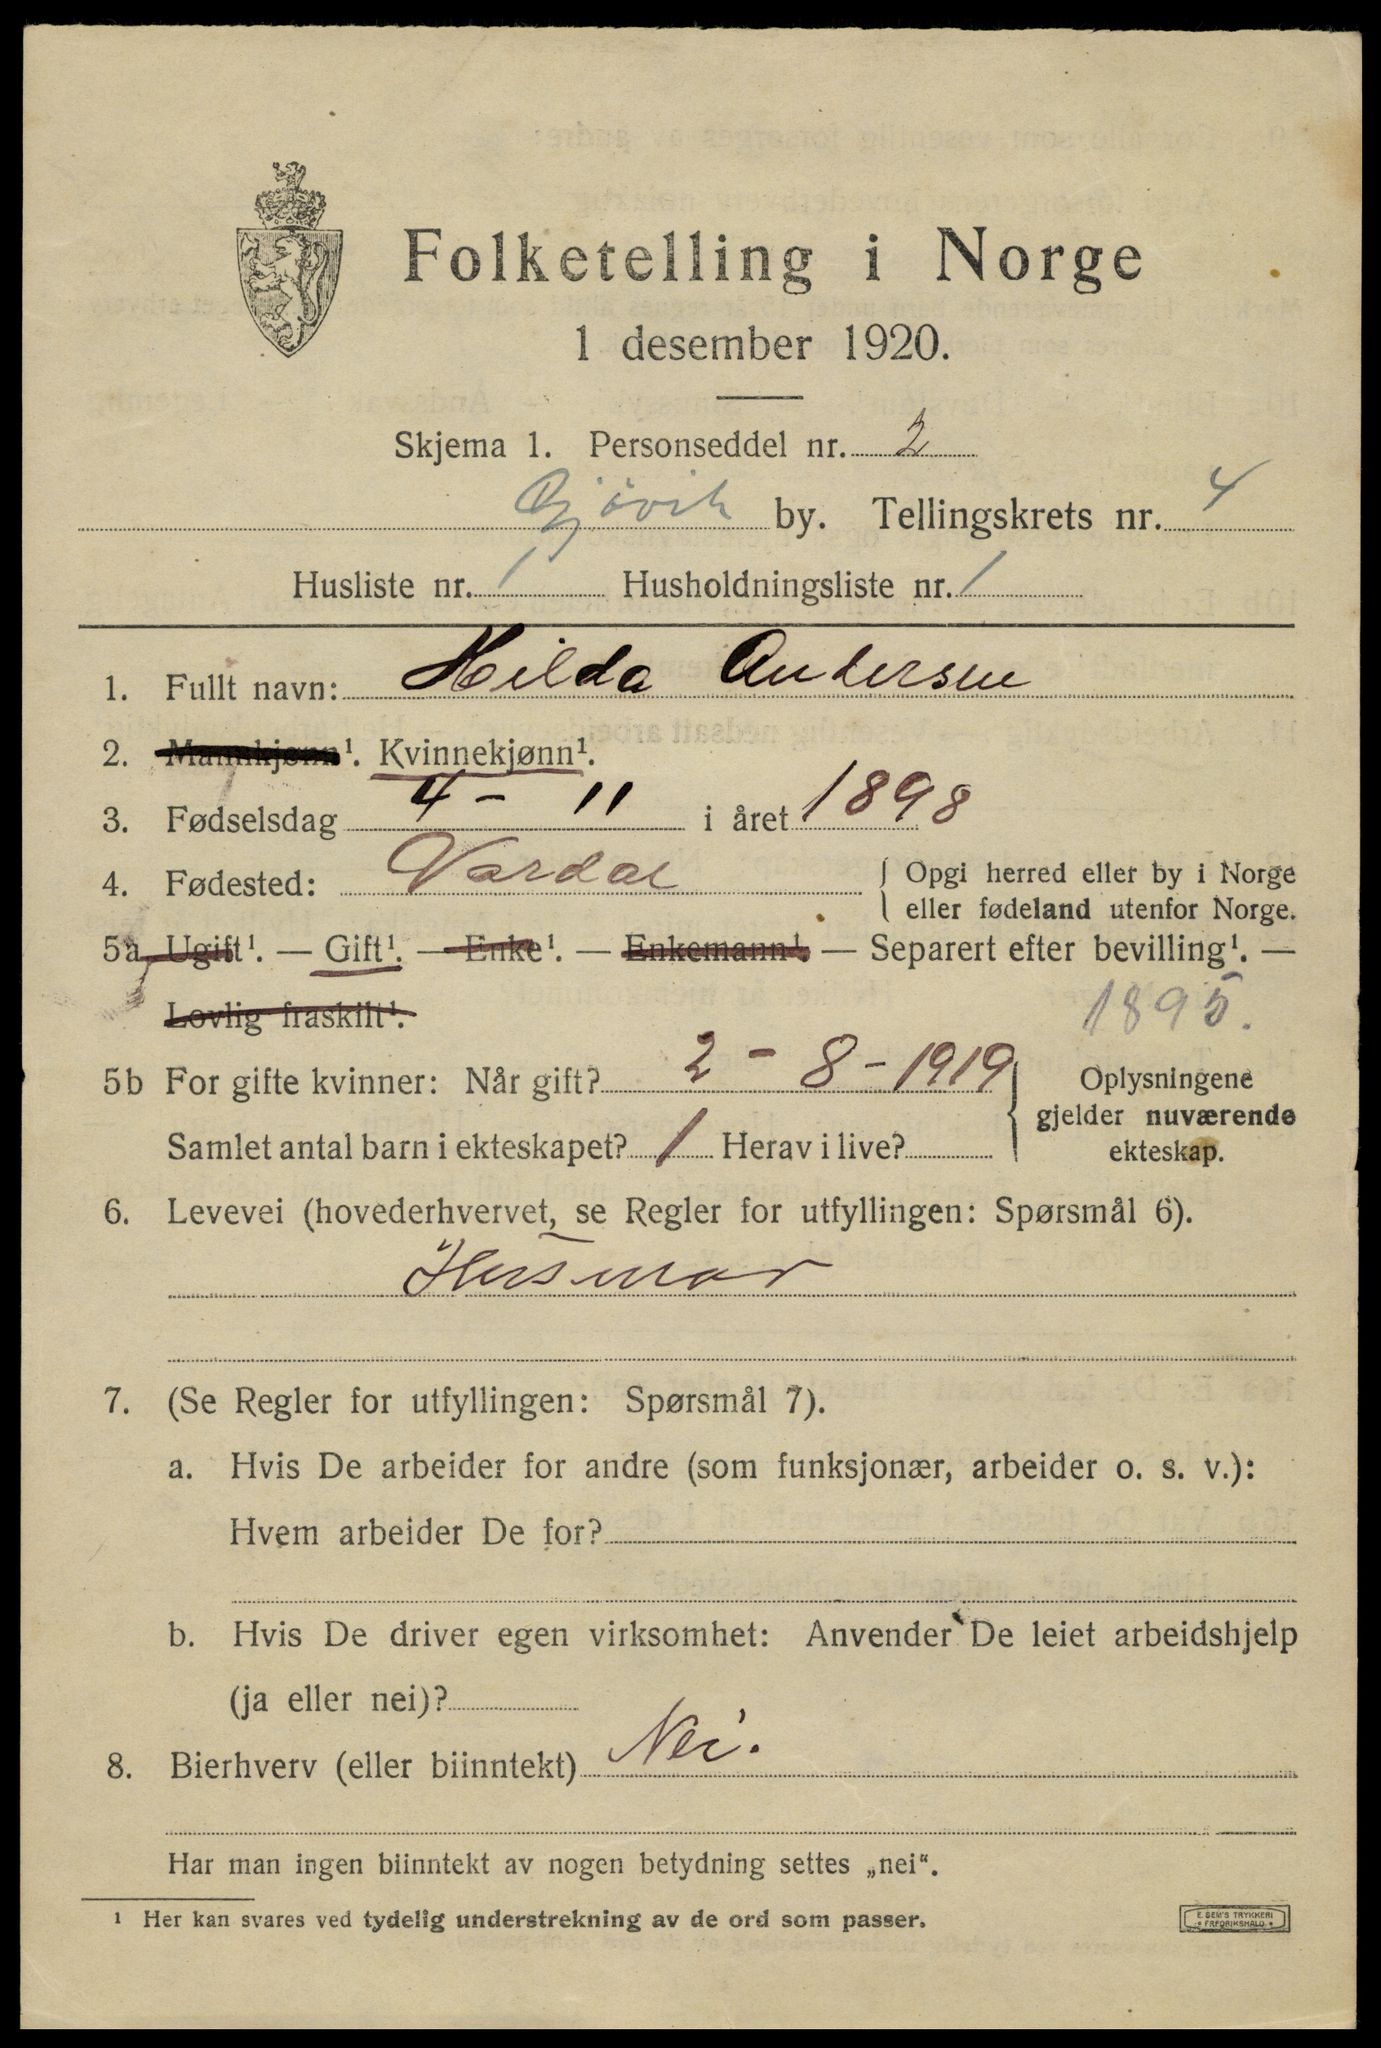 Folketelling i Norge
1 desember 1920.
Skjema 1. Personseddel nr. 2
Gjøvik by. Tellingskrets nr. 4
Husliste nr. 1 Husholdningsliste nr. 1
1. Fullt navn: Hilda Andersen
2. Mannkjønn¹. Kvinnekjønn¹.
3. Fødselsdag 4 - 11 i året 1898
4. Fødested: Vardal { Opgi herred eller by i Norge
eller fødeland utenfor Norge.
5a Ugift¹. — Gift¹. — Enke¹. — Enkemann¹. — Separert efter bevilling¹. —
Lovlig fraskilt¹. 1895.
5b For gifte kvinner: Når gift? 2 - 8 - 1919 } Oplysningene
gjelder nuværende
Samlet antal barn i ekteskapet? 1 Herav i live? ekteskap.
6. Levevei (hovederhvervet, se Regler for utfyllingen: Spørsmål 6).
Husmor
7. (Se Regler for utfyllingen: Spørsmål 7).
a. Hvis De arbeider for andre (som funksjonær, arbeider o. s. v.):
Hvem arbeider De for?
b. Hvis De driver egen virksomhet: Anvender De leiet arbeidshjelp
(ja eller nei)?
8. Bierhverv (eller biinntekt) Nei.
Har man ingen biinntekt av nogen betydning settes „nei“.
¹ Her kan svares ved tydelig understrekning av de ord som passer.
E. SEM'S TRYKKERI
FREDRIKSHALD